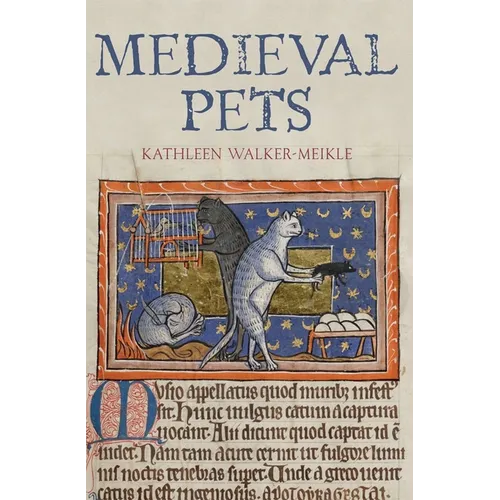 MEDIEVAL
PETS
KATHLEEN WALKER-MEIKLE
Musio appellatus quod muribz infest
sit. Hunc uulgus catum a captura
uocant. Alii dicunt quod captat id ẽ
uidet. Nam tam acute cernit ut fulgore lumi
nis noctis tenebras superet. Unde a greco uenit
catus id est ingeniosus,